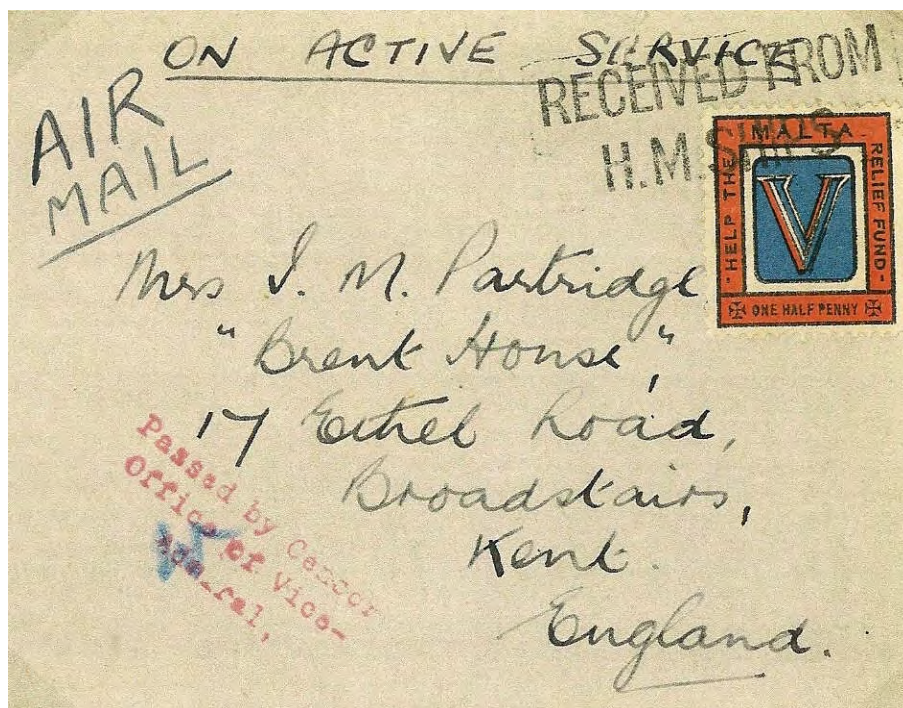 ON ACTIVE SERVICE
RECEIVED FROM
H.M. SHIPS
AIR
MAIL
MALTA
HELP THE
RELIEF FUND
V
ONE HALF PENNY
Mrs I. M. Partridge
"Brent House",
17 Ethel Road,
Broadstairs,
Kent.
England.
Passed by Cencor
Office of Vice-
Admiral,